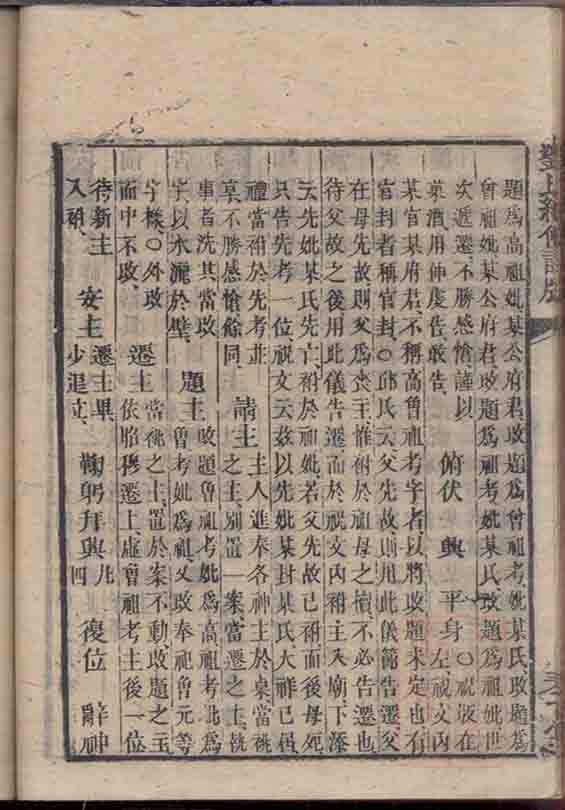 題爲高祖妣某公府君改題爲曾祖考妣某氏改題爲
曾祖妣某公府君改題爲祖考妣某氏改題爲祖妣世
次遞遷不勝感愴謹以
菓酒用伸虔告敢告 俯伏 興 平身 左祝文內
某官某府君不稱高曾祖考字者以將改題未定也有
官封者稱官封○邱氏云父先故則用此儀範告遷父
在母先故則父爲喪主惟祔於祖母之櫝不必告遷也
待父故之後用此儀告遷而於祝文內祔主入廟下添
云先妣某氏先亡祔於祖妣若父先故已祔而後母死
只告先考一位祝文云茲以先妣某封某氏大祥已屆
禮當祔於先考並
享不勝感愴餘同 請主 主人進奉各神主於桌當祧
之主別置一案當遷之主執
事者洗其當改
字以水灑於壁 題主 改題曾祖考妣爲高祖考妣爲
曾考妣爲祖又改奉祀曾元等
字樣○外改
面中不改 遷主 當祧之主置於案不動改題之主
依昭穆遷上虛曾祖考主後一位
待新主
入祔 安主 遷主畢
少退立 鞠躬拜興 凡
四 復位 辭神